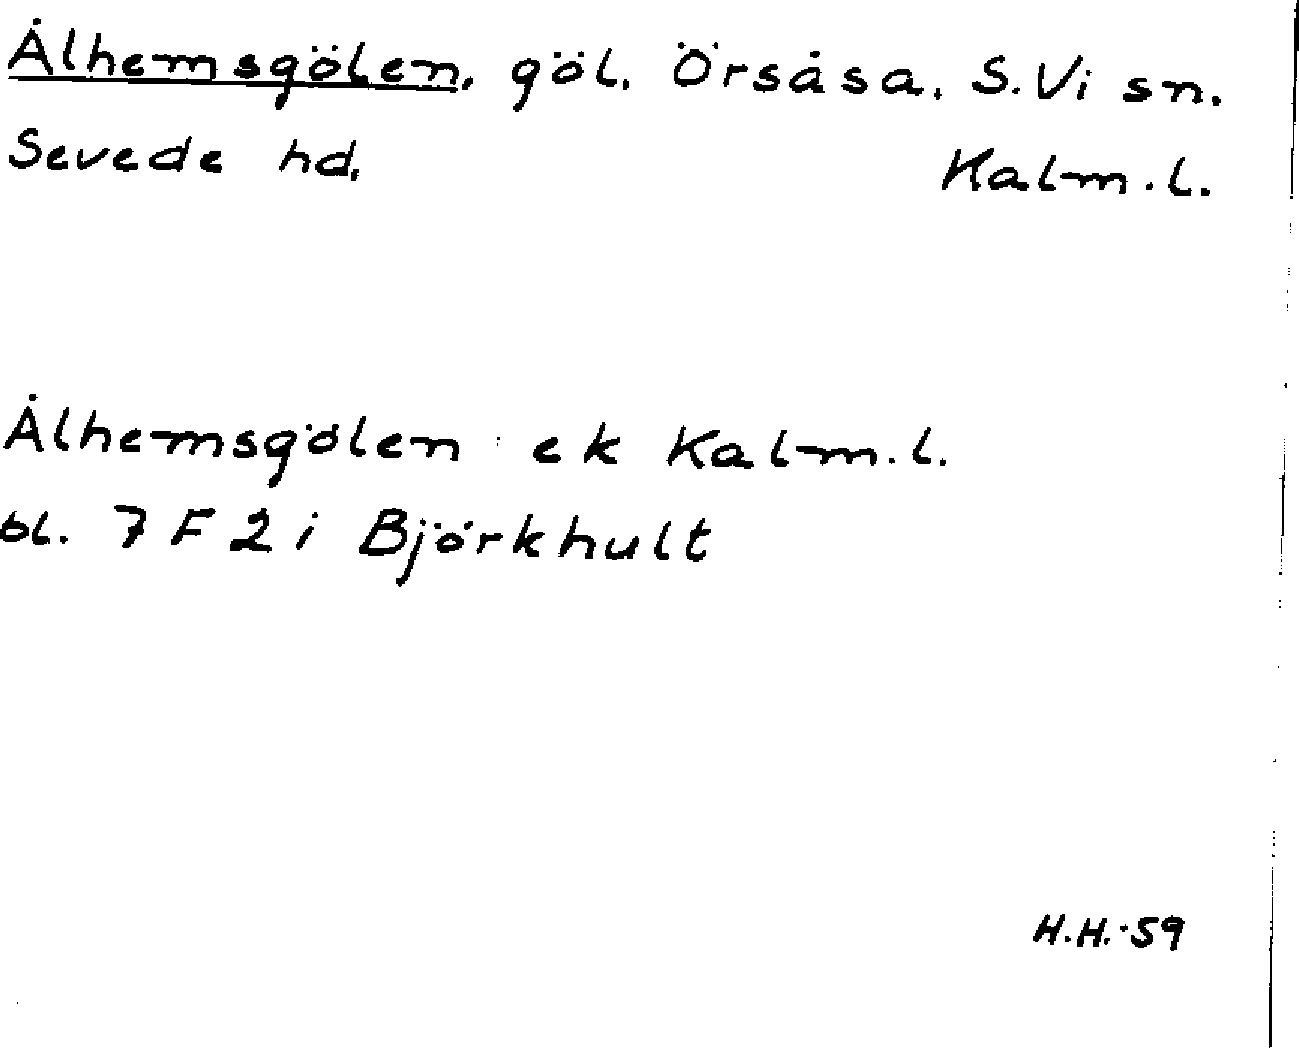 Ålhemsgölen, göl. Örsåsa, S. Vi sn.
Sevede hd. Kalm. l.
Ålhemsgölen ek Kalm. l.
bl. 7 F 2 i Björkhult
H.H. -59